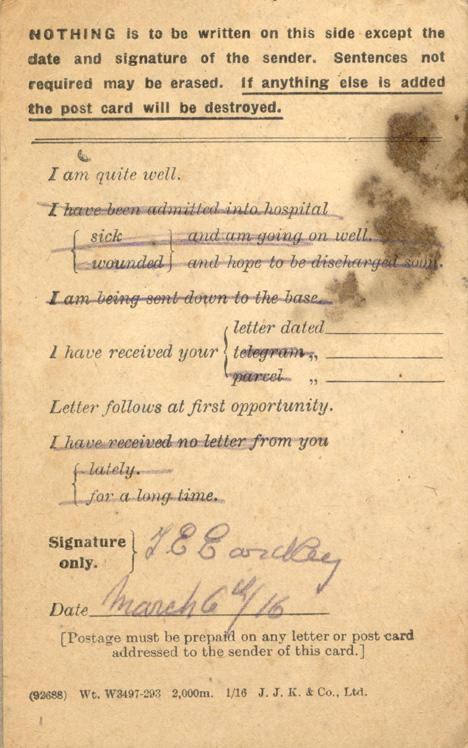 NOTHING is to be written on this side except the
date and signature of the sender. Sentences not
required may be erased. If anything else is added
the post card will be destroyed.
I am quite well.
I have been admitted into hospital
{ sick } and am going on well.
{ wounded } and hope to be discharged soon.
I am being sent down to the base.
letter dated
I have received your { telegram „
parcel „
Letter follows at first opportunity.
I have received no letter from you
{ lately.
{ for a long time.
Signature
only. } T E Eardley
Date March 6th/16
[Postage must be prepaid on any letter or post card
addressed to the sender of this card.]
(92688) Wt. W3497-293 2,000m. 1/16 J. J. K. & Co., Ltd.